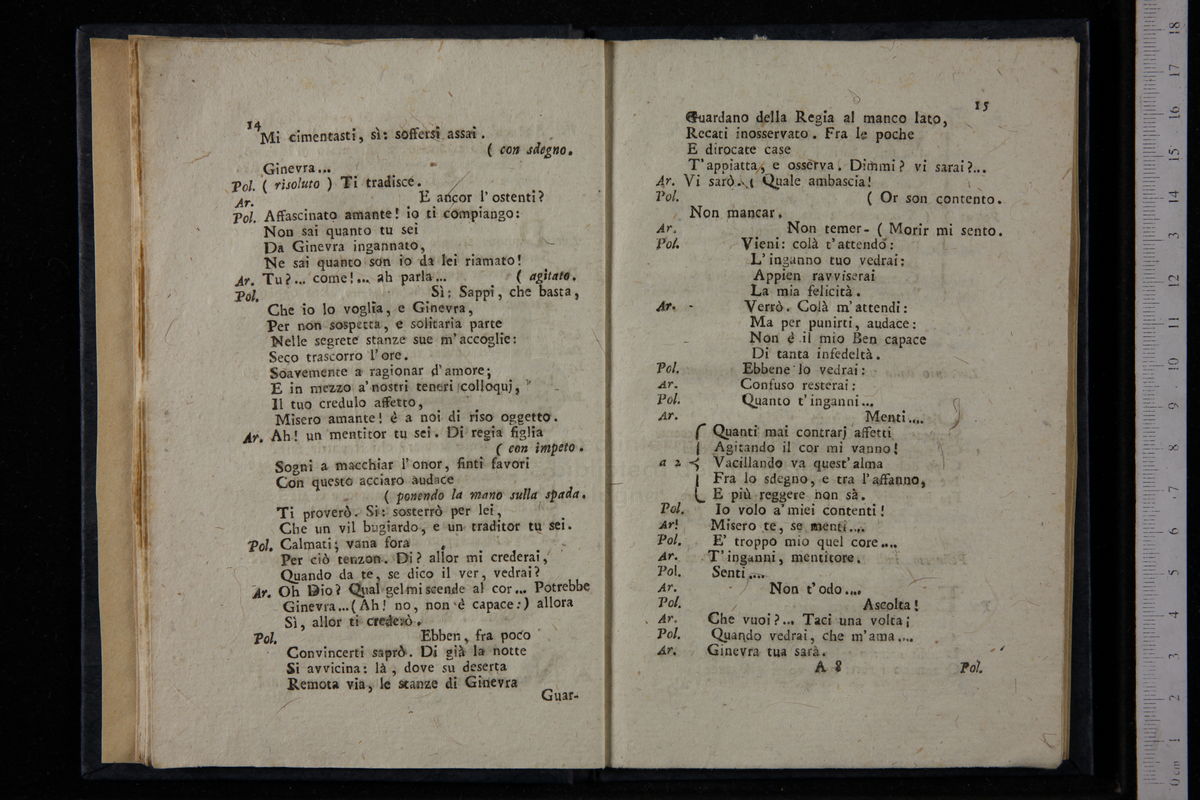 14
Mi cimentasti, sì: soffersi assai.
( con sdegno.
Ginevra...
Pol. ( risoluto ) Ti tradisce.
Ar. E ancor l'ostenti?
Pol. Affascinato amante! io ti compiango:
Non sai quanto tu sei
Da Ginevra ingannato,
Ne sai quanto son io da lei riamato!
Ar. Tu?... come!... ah parla... ( agitato.
Pol. Sì: Sappi, che basta,
Che io lo voglia, e Ginevra,
Per non sospetta, e solitaria parte
Nelle segrete stanze sue m'accoglie:
Seco trascorro l'ore.
Soavemente a ragionar d'amore;
E in mezzo a'nostri teneri colloquj,
Il tuo credulo affetto,
Misero amante! è a noi di riso oggetto.
Ar. Ah! un mentitor tu sei. Di regia figlia
( con impeto.
Sogni a macchiar l'onor, finti favori
Con questo acciaro audace
( ponendo la mano sulla spada.
Ti proverò. Si: sosterrò per lei,
Che un vil bugiardo, e un traditor tu sei.
Pol. Calmati; vana fora
Per ciò tenzon. Di? allor mi crederai,
Quando da te, se dico il ver, vedrai?
Ar. Oh Dio? Qual gel mi scende al cor... Potrebbe
Ginevra...(Ah! no, non è capace:) allora
Sì, allor ti crederò.
Pol. Ebben, fra poco
Convincerti saprò. Di già la notte
Si avvicina: là, dove su deserta
Remota via, le stanze di Ginevra
Guar-
15
Guardano della Regia al manco lato,
Recati inosservato. Fra le poche
E dirocate case
T'appiatta, e osserva. Dimmi? vi sarai?...
Ar. Vi sarò. ( Quale ambascia!
Pol. ( Or son contento.
Non mancar.
Ar. Non temer- ( Morir mi sento.
Pol. Vieni: colà t'attendo:
L'inganno tuo vedrai:
Appien ravviserai
La mia felicità.
Ar. - Verrò. Colà m'attendi:
Ma per punirti, audace:
Non è il mio Ben capace
Di tanta infedeltà.
Pol. Ebbene lo vedrai:
Ar. Confuso resterai:
Pol. Quanto t'inganni...
Ar. Menti....
Quanti mai contrarj affetti
Agitando il cor mi vanno!
a 2 Vacillando va quest'alma
Fra lo sdegno, e tra l'affanno,
E più reggere non sà.
Pol. Io volo a'miei contenti!
Ar! Misero te, se menti....
Pol. E' troppo mio quel core....
Ar. T'inganni, mentitore.
Pol. Senti....
Ar. Non t'odo....
Pol. Ascolta!
Ar. Che vuoi?... Taci una volta;
Pol. Quando vedrai, che m'ama....
Ar. Ginevra tua sarà.
A 8 Pol.
0 cm 1 2 3 4 5 6 7 8 9 10 11 12 13 14 15 16 17 18